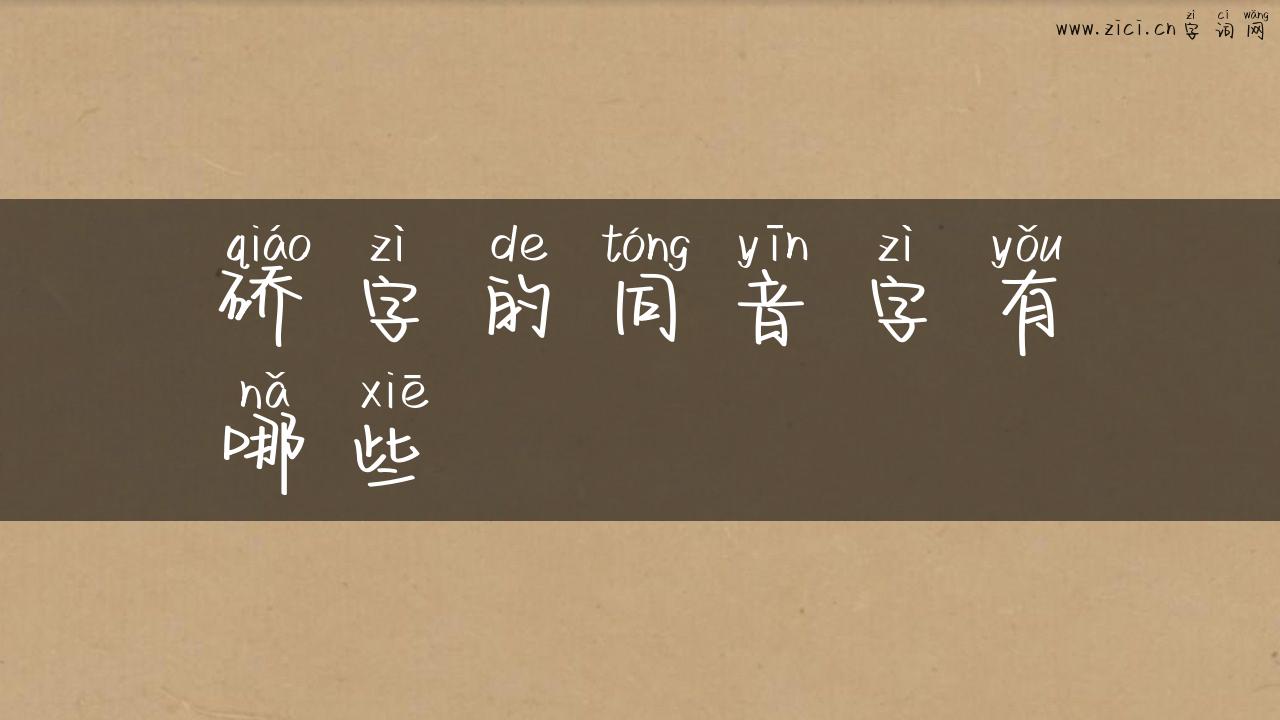 zì cí wǎng
www.zici.cn 字词网
qiáo zì de tóng yīn zì yǒu
硚字的同音字有
nǎ xiē
哪些